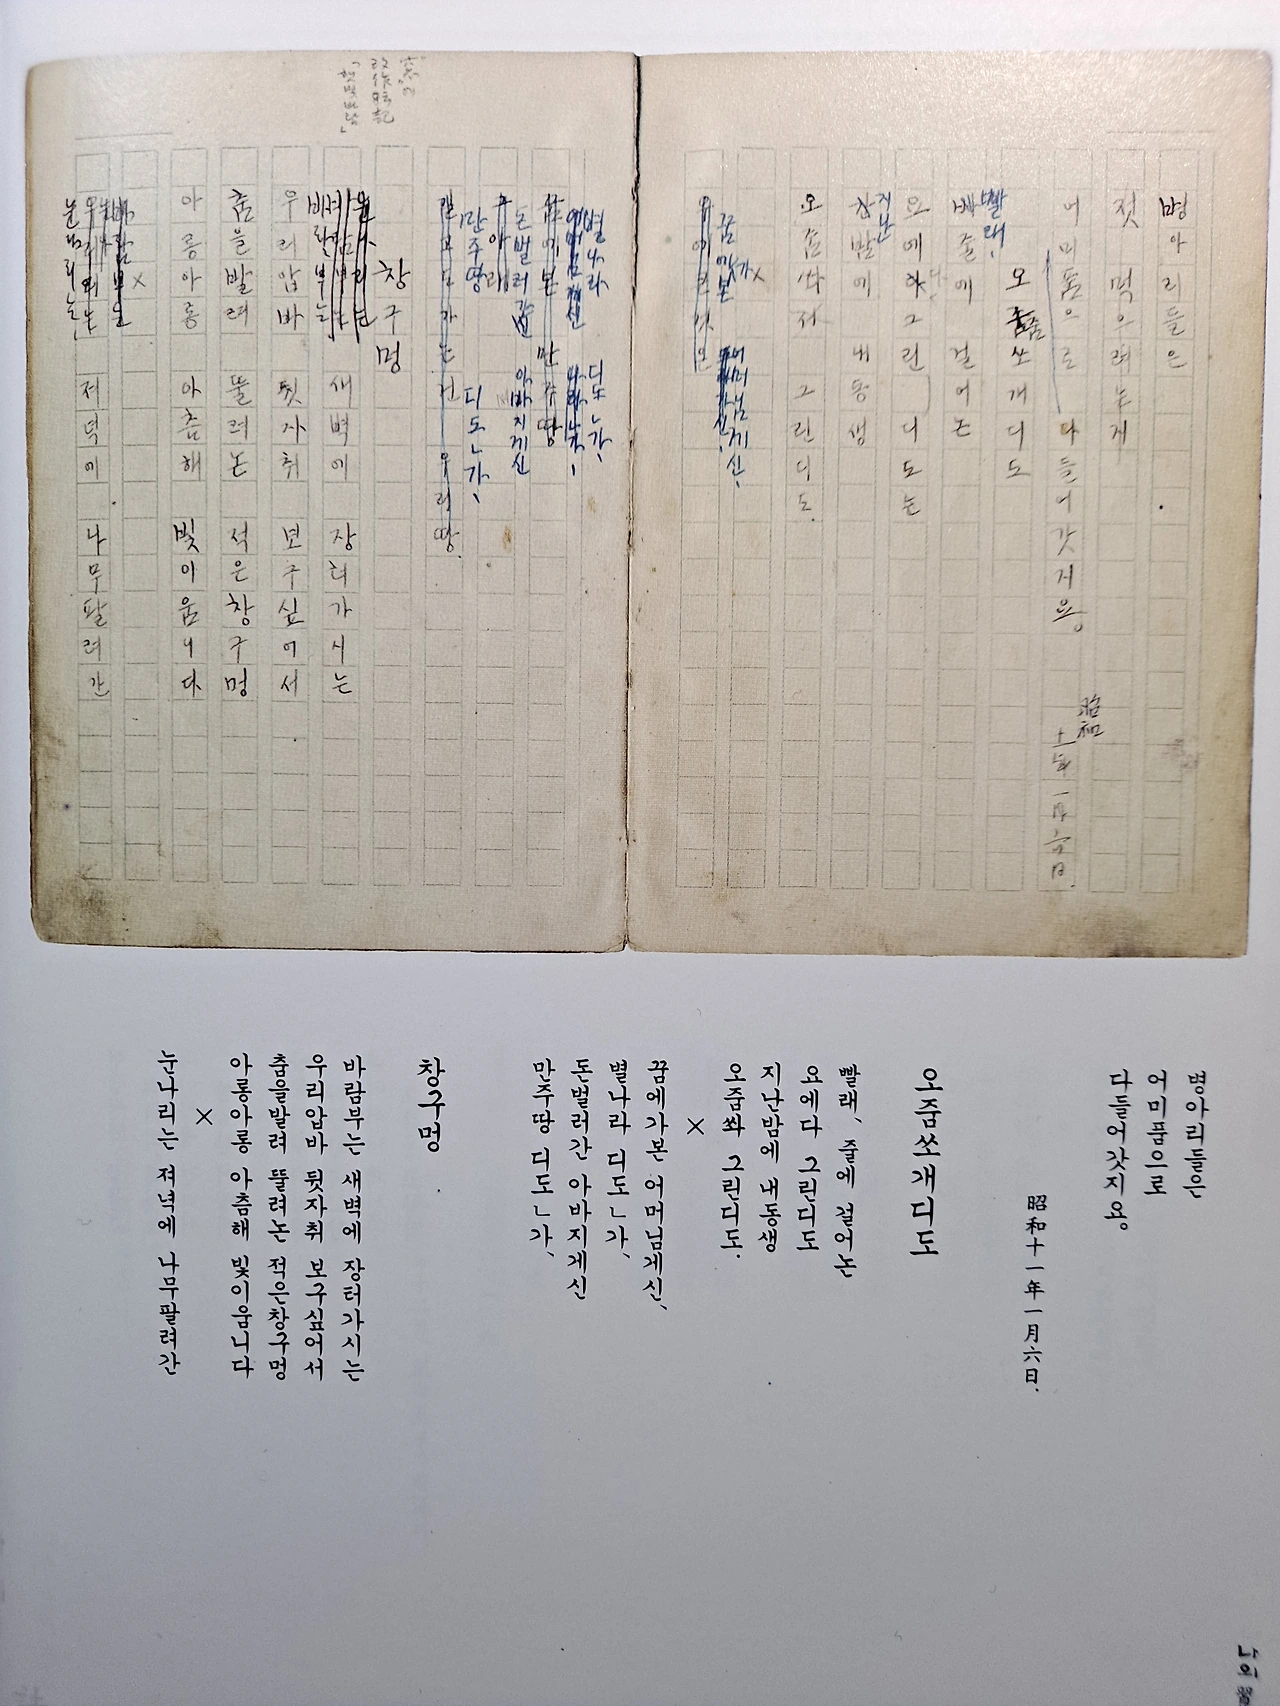 병아리들은
젓 먹으려는게
어미품으로 다들어갓지요。
昭和
十一年一月六日.
오줌쏘개디도
빨래,
줄에 걸어논
요에다 그린디도는
지난
밤에 내동생
오줌싸서 그린디도.
×
꿈에가본 어머님게신,
별나라 디도ㄴ가,
돈벌러간 아바지게신
만주땅 디도ㄴ가,
우리땅.
창구멍
바람부는 새벽에 장터가시는
우리압바 뒷자취 보구싶어서
춤을발려 뚤려논 적은창구멍
아롱아롱 아츰해 빛이움니다
×
눈나리는 저녁에 나무팔려간
병아리들은
어미품으로
다들어갓지요。
昭和十一年一月六日.
오줌쏘개디도
빨래、줄에 걸어논
요에다 그린디도
지난밤에 내동생
오줌쏴 그린디도.
×
꿈에가본 어머님게신、
별나라 디도ㄴ가、
돈벌러간 아바지게신
만주땅 디도ㄴ가、
창구멍
바람부는 새벽에 장터가시는
우리압바 뒷자취 보구싶어서
춤을발려 뚤려논 적은창구멍
아롱아롱 아츰해 빛이움니다
×
눈나리는 져녁에 나무팔려간
나의